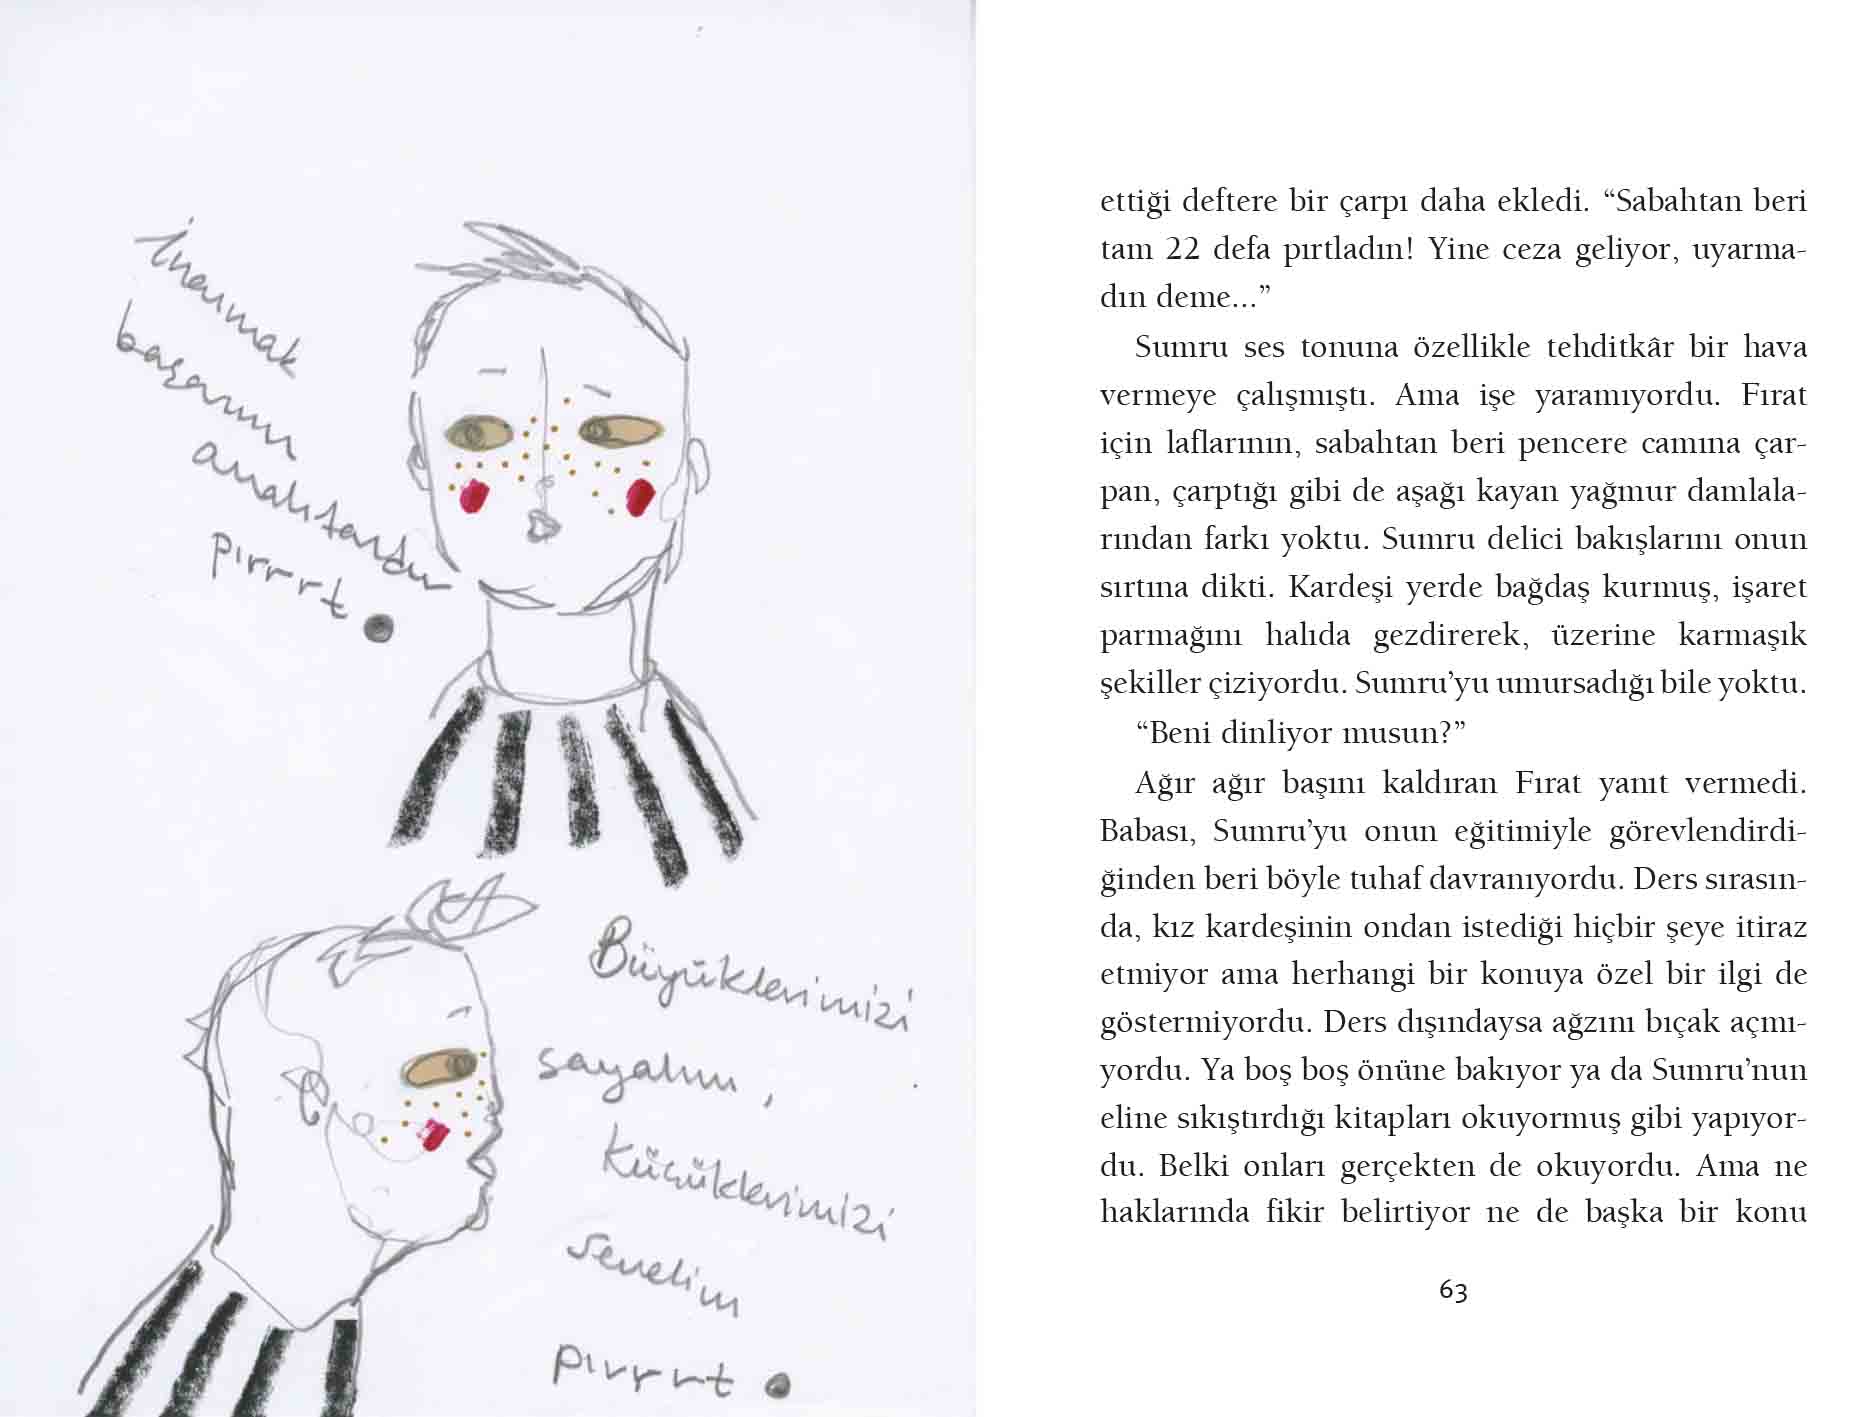 İnanmak
başarının
anahtarıdır
pırrrt
Büyüklerimizi
sayalım,
küçüklerimizi
sevelim
pırrrt
ettiği deftere bir çarpı daha ekledi. “Sabahtan beri
tam 22 defa pırtladın! Yine ceza geliyor, uyarma-
dın deme...”
Sumru ses tonuna özellikle tehditkâr bir hava
vermeye çalışmıştı. Ama işe yaramıyordu. Fırat
için laflarının, sabahtan beri pencere camına çar-
pan, çarptığı gibi de aşağı kayan yağmur damlala-
rından farkı yoktu. Sumru delici bakışlarını onun
sırtına dikti. Kardeşi yerde bağdaş kurmuş, işaret
parmağını halıda gezdirerek, üzerine karmaşık
şekiller çiziyordu. Sumru’yu umursadığı bile yoktu.
“Beni dinliyor musun?”
Ağır ağır başını kaldıran Fırat yanıt vermedi.
Babası, Sumru’yu onun eğitimiyle görevlendirdi-
ğinden beri böyle tuhaf davranıyordu. Ders sırasın-
da, kız kardeşinin ondan istediği hiçbir şeye itiraz
etmiyor ama herhangi bir konuya özel bir ilgi de
göstermiyordu. Ders dışındaysa ağzını bıçak açmı-
yordu. Ya boş boş önüne bakıyor ya da Sumru’nun
eline sıkıştırdığı kitapları okuyormuş gibi yapıyor-
du. Belki onları gerçekten de okuyordu. Ama ne
haklarında fikir belirtiyor ne de başka bir konu
63